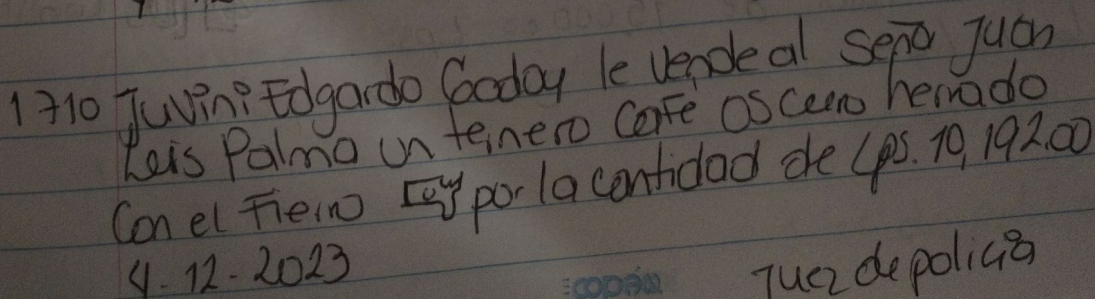 1710 Juvini Edgardo Goday le vende al seña Juan
Leis Palma un teinero cafe oscuro herrado
Con el Fierro por la cantidad de Lps. 10,192.00
4-12-2023
Juez de policia